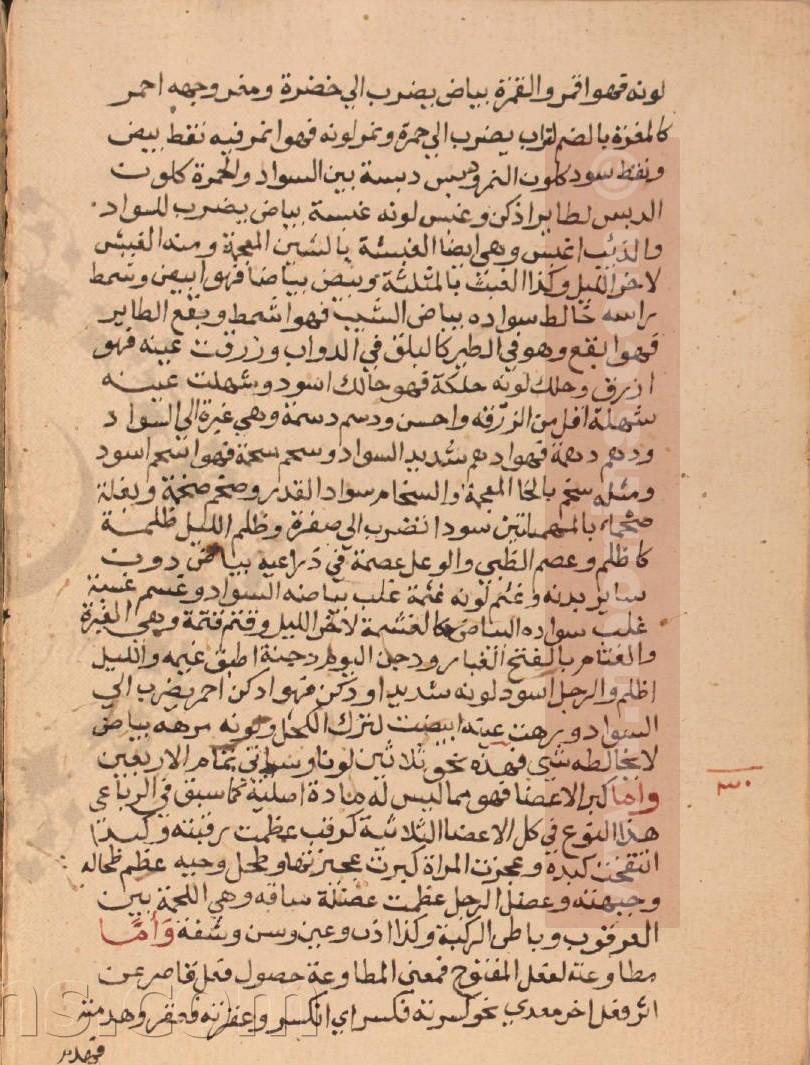 لونه فهو اقمر والقمرة بياض يضرب الي خضرة ومغر وجهه احمر
كالمغرة بالضم لتراب يضرب الي حمرة ونمر لونه فهو انمر فيه نقط بيض
ونقط سود كلون النمر ودبس دبسة بين السواد والحمرة كلون
الدبس لطاير اذكن وغبس لونه غبسة بياض يضرب للسواد
والذئب اغبس وهي ايضا الغبشة بالشين المعجمة ومنه الغبش
لاخر الليل وكذا الغبث بالمثلثة وبيض بياضا فهو ابيض وشمط
راسه خالط سواده بياض الشيب فهو اشمط وبقع الطاير
فهو ابقع وهو في الطير كالبلق في الدواب وزرقت عينه فهو
ازرق وحلك لونه حلكة فهو حالك اسود وشهلت عينه
شهلة اقل من الزرقه واحسن ودسم دسمة وهي غبرة الي السواد
ودهم دهمة فهو ادهم شديد السواد وسحم سحمة فهو اسحم اسود
ومثله سخم بالخا المعجمة والسخام سواد القدر وصحم صحمة وبغلة
صحماء بالمهملتين سودا تضرب الي صفرة وظلم الليل ظلمة
كاظلم وعصم الظبي والوعل عصمة في ذراعيه بياض دون
ساير بدنه وغثم لونه غثمة غلب بياضه السواد وغسم غسمة
غلب سواده البياض كالغشمة لاخر الليل وقتم قتمة وهي الغبرة
والغتام بالفتح الغبار ودجن اليوم دجنة اطبق غيمه والليل
اظلم والرجل اسود لونه شديدا ودكن فهو ادكن احمر يضرب الي
السواد ومرهت عينه ابيضت لترك الكحل ولونه مرهه بياض
لا يخالطه شي فهذه نحو ثلاثين لونا وسياتي تمام الاربعين
واما كبر الاعضا فهو مما ليس له مادة اصلية كما سبق في الرباعي
هذا النوع في كل الاعضا الثلاثية كرقب عظمت رقبته وكبد
انتفخت كبده وعجزت المراة كبرت عجيزتها وطحل وجبه عظم طحاله
وجبهته وعضل الرجل عظمت عضلة ساقه وهي اللحمة بين
العرقوب وباطن الركبة وكذا اذن وعين وسن وشفة وأما
مطاوعته لفعل المفتوح فمعني المطاوعة حصول فعل قاصر عن
اثر فعل اخر معدي نحو كسرته فكسر اي انكسر وعقرته فعقر وهدمته
فهدم
٣٠